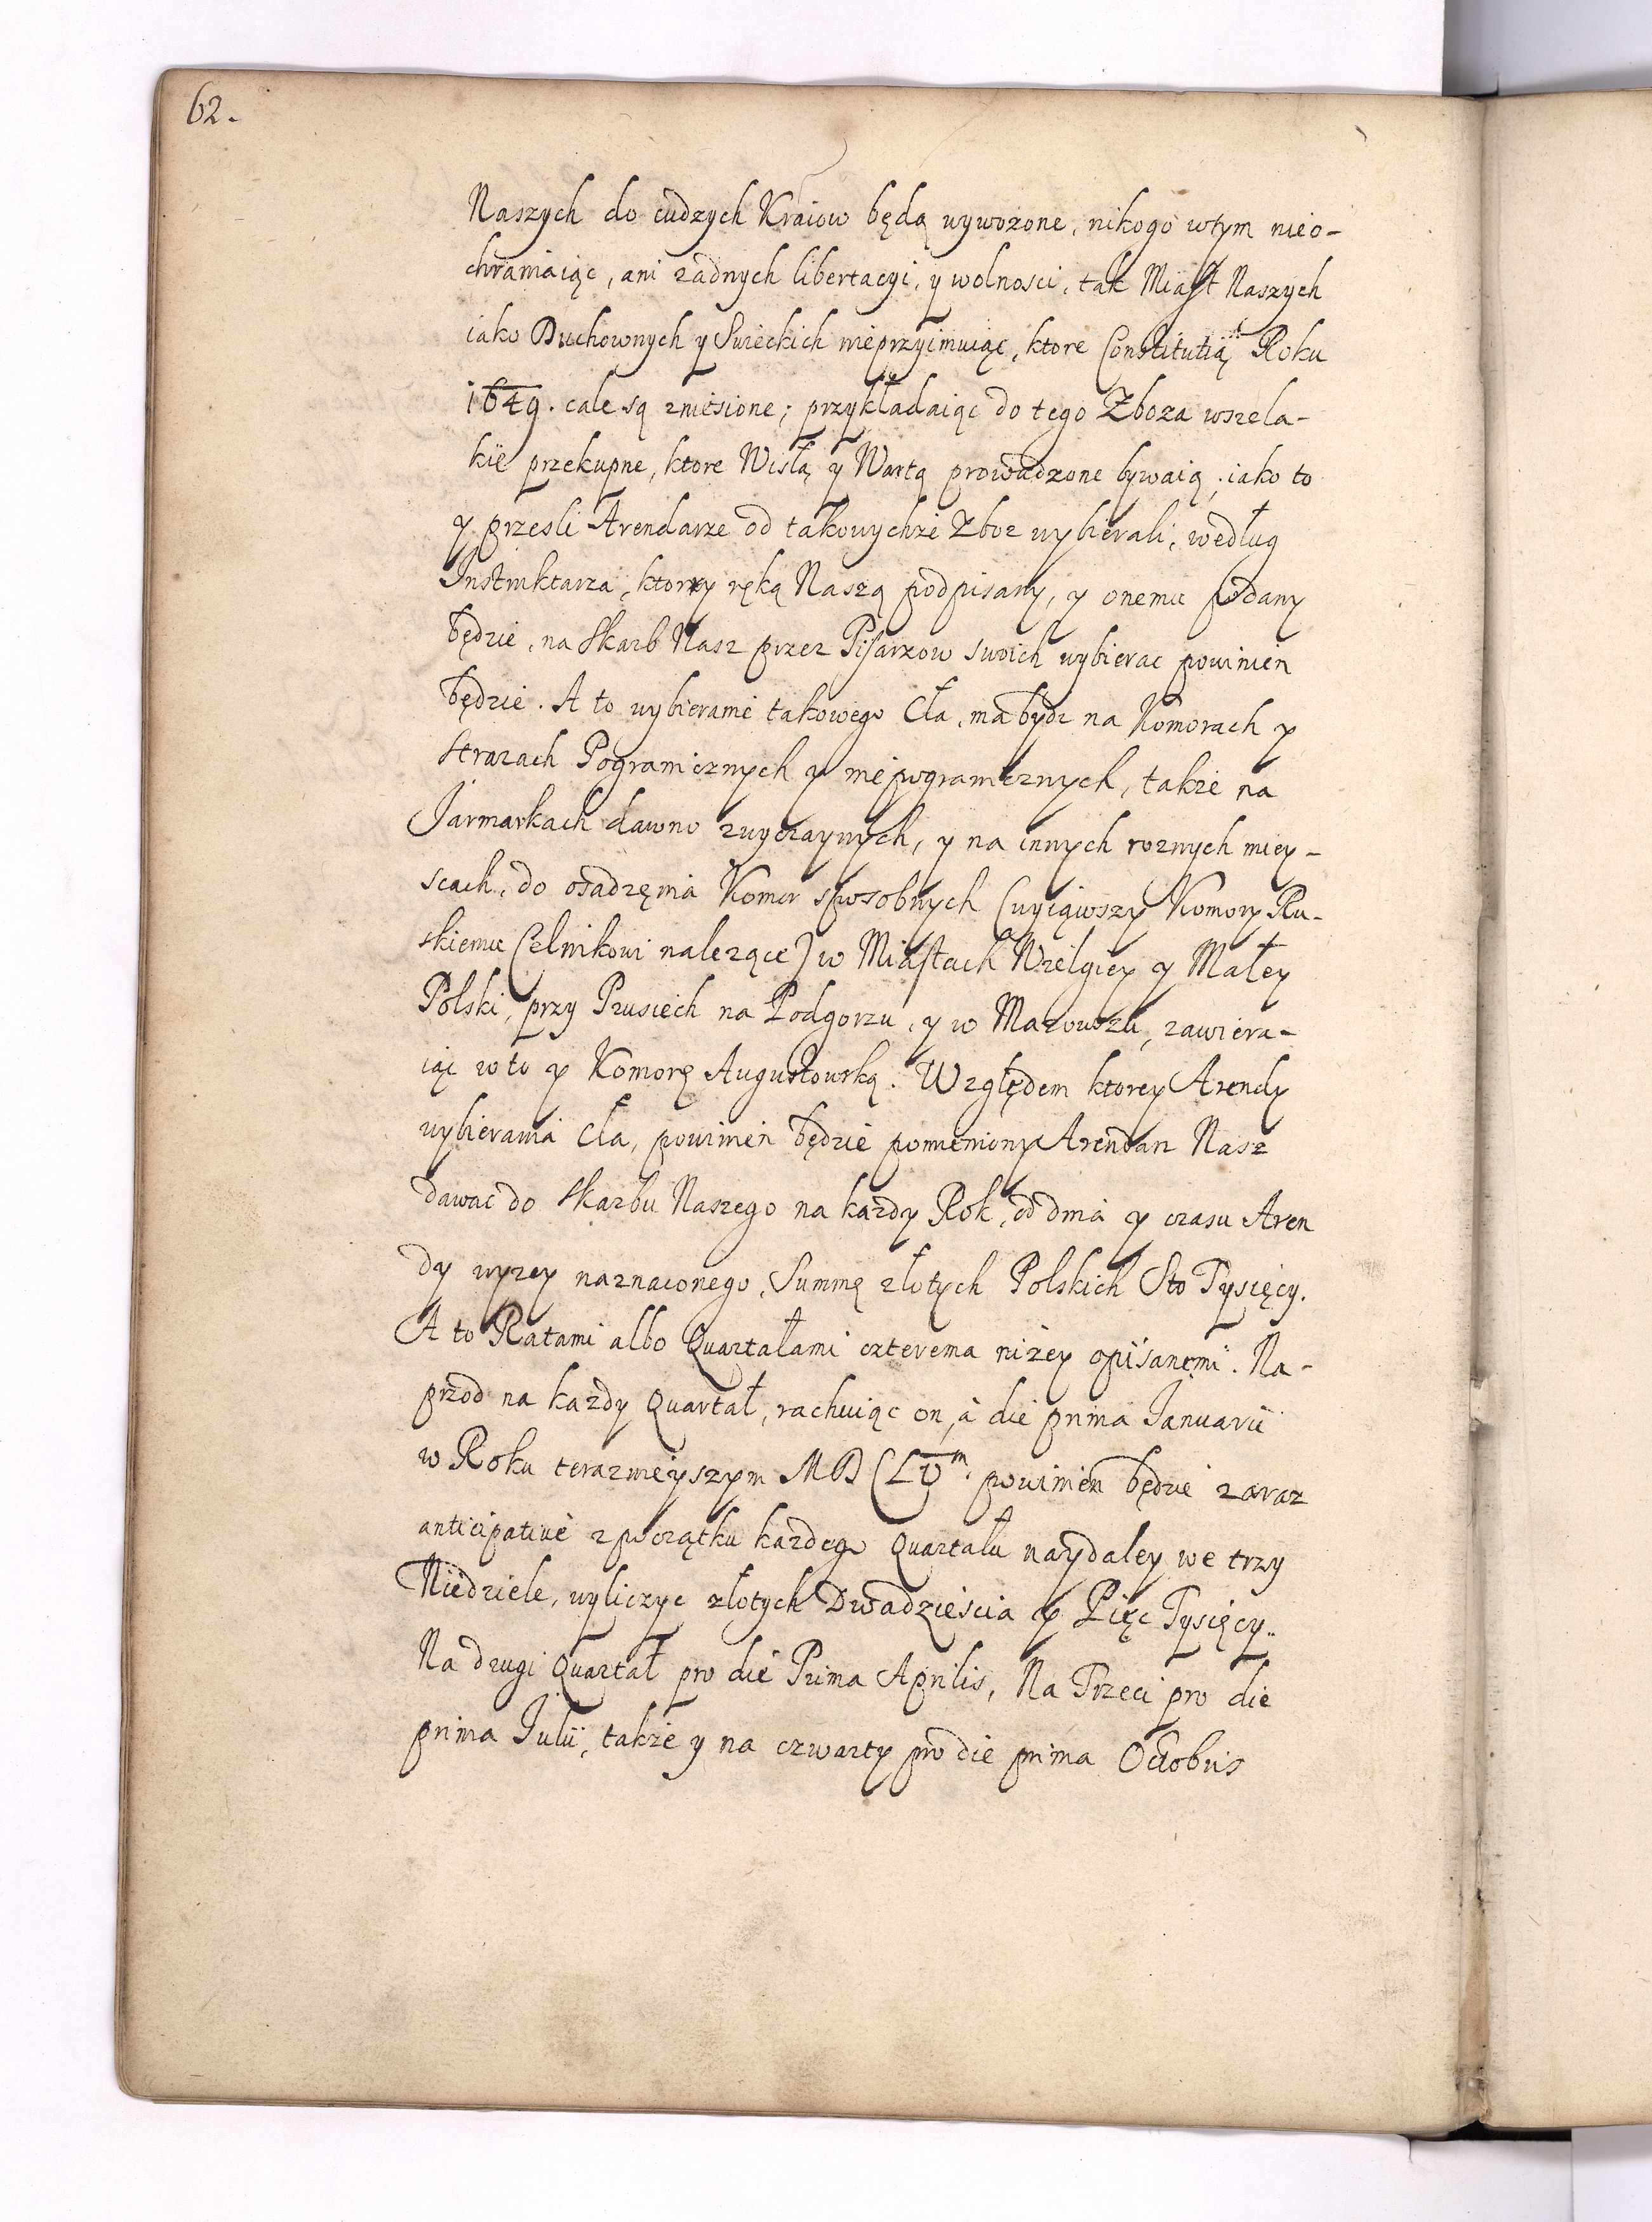 62.
Naszych do cudzych Kraiow będą wywozone, nikogo wtym nieo-
chraniaiąc, ani zadnych libertacyi, y wolnosci, tak Miast Naszych
iako Duchownych y Swieckich nieprzyimuiąc, ktore Constitutią Roku
1649. cale są zniesione; przykładaiąc do tego Zboza wszela-
kie przekupne, ktore Wisłą y Wartą prowadzone bywaią, iako to
y przesli Arendarze od takowychze Zboz wybierali, według
Instruktarza, ktory ręką Naszą podpisany, y onemu podany
będzie, na Skarb Nasz przez Pisarzow swoich wybierac powinien
będzie. A to wybieranie takowego Cła, ma bydz na Komorach y
Strazach Pogranicznych y niepogranicznych, takze na
Jarmarkach dawno zwyczaynych, y na innych roznych miey-
scach, do osadzęnia Komor sposobnych (wyiąwszy Komory Ru-
skiemu Celnikowi nalezące) w Miastach Wielgiey y Małey
Polski, przy Prusiech na Podgorzu, y w Mazowszu, zawiera-
iąc w to y Komorę Augustowską. Względem ktorey Arendy
wybierania Cła, powinien będzie pomieniony Arendarz Nasz
dawac do Skarbu Naszego na kazdy Rok, od dnia y czasu Aren
dy wyzey naznaczonego, Summę złotych Polskich Sto Tysięcy.
A to Ratami albo Quartałami czterema nizey opisanemi. Na-
przod na kazdy Quartał, rachuiąc on, à die prima Januarii
w Roku teraznieyszym MDCLVm. powinien będzie zaraz
anticipativè z początku kazdego Quartału naydaley we trzy
Niedziele, wyliczyc złotych Dwadziescia y Pięc Tysięcy.
Na drugi Quartał pro die Prima Aprilis, Na Trzeci pro die
prima Julii, takze y na czwarty pro die prima Octobris